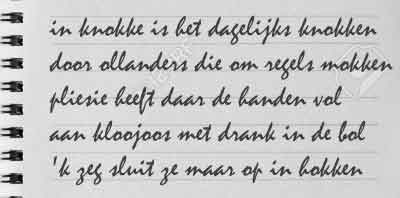 in knokke is het dagelijks knokken
door ollanders die om regels mokken
pliesie heeft daar de handen vol
aan kloojoos met drank in de bol
'k zeg sluit ze maar op in hokken